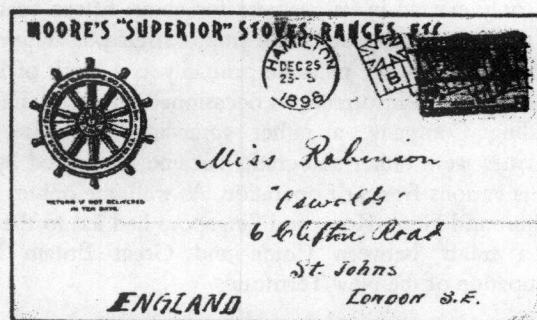 MOORE'S "SUPERIOR" STOVES, RANGES, ETC
HAMILTON
DEC 25
23-5
1898
B
RETURN IF NOT DELIVERED
IN TEN DAYS.
Miss Robinson
6 Clifton Road
St. Johns
London S.E.
ENGLAND